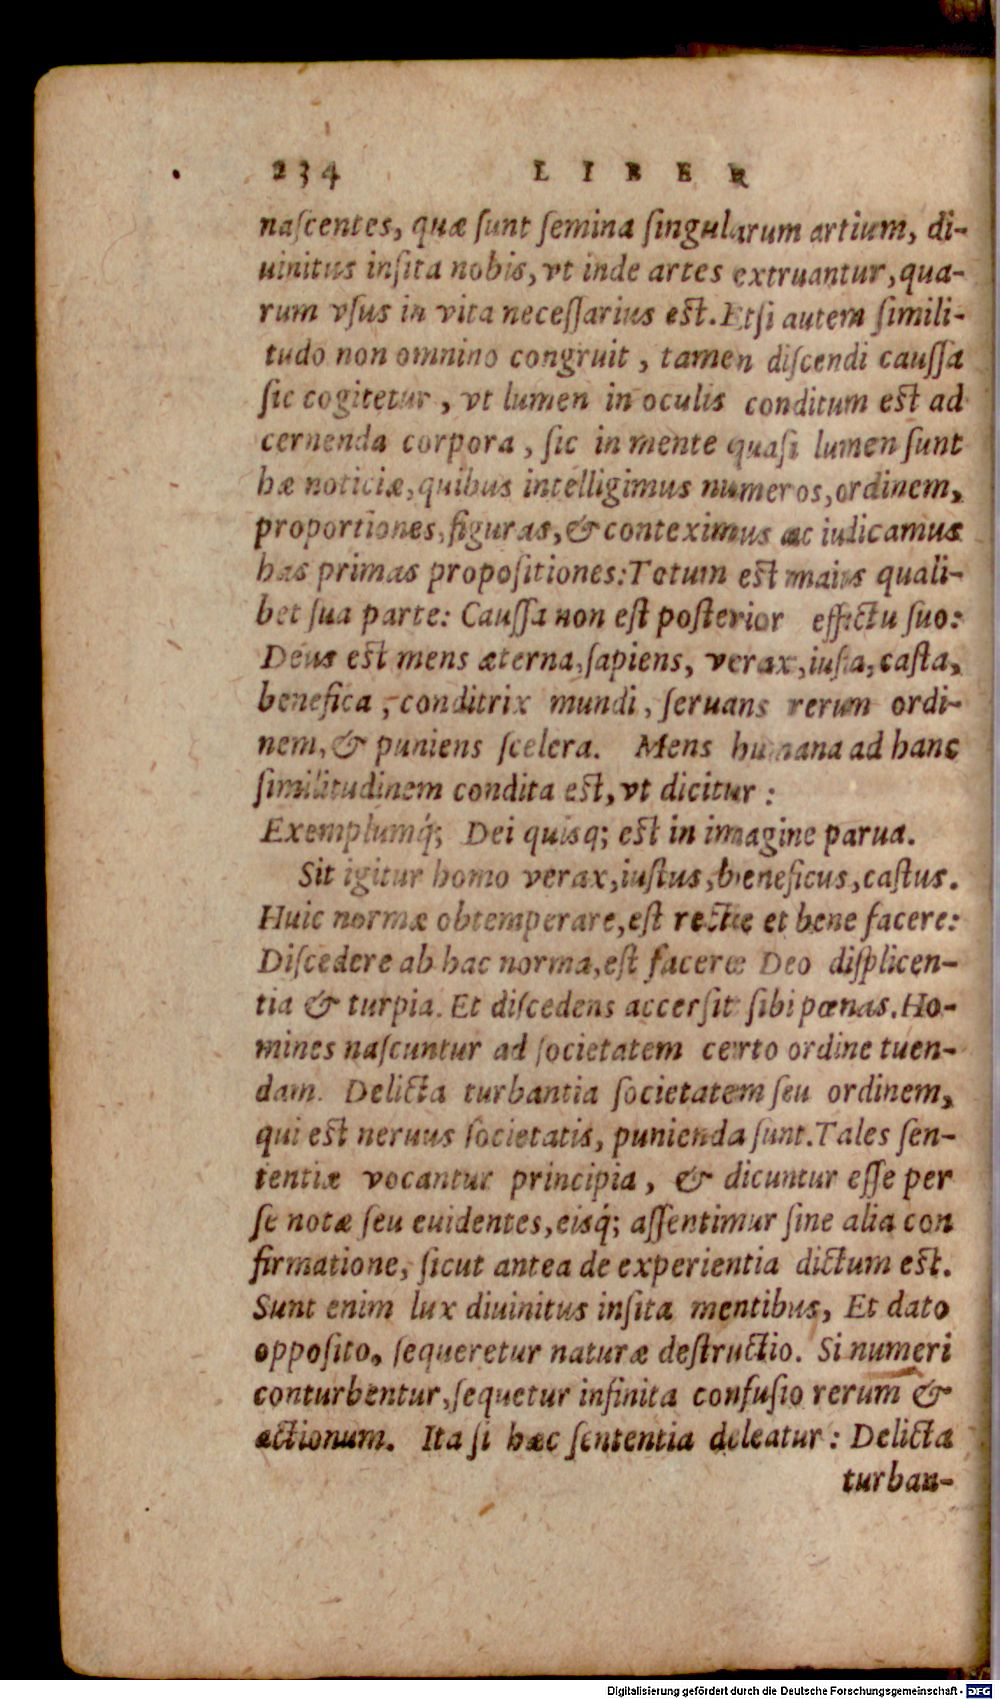 234 LIBER
naſcentes, quæ ſunt ſemina ſingularum artium, di-
uinitus inſita nobis, vt inde artes extruantur, qua-
rum vſus in vita neceſſarius eſt. Etſi autem ſimili-
tudo non omnino congruit, tamen diſcendi cauſſa
ſic cogitetur, vt lumen in oculis conditum eſt ad
cernenda corpora, ſic in mente quaſi lumen ſunt
hæ noticiæ, quibus intelligimus numeros, ordinem,
proportiones, figuras, & conteximus ac iudicamus
has primas propoſitiones: Totum eſt maius quali-
bet ſua parte: Cauſſa non eſt poſterior effectu ſuo:
Deus eſt mens æterna, ſapiens, verax, iuſta, caſta,
benefica, conditrix mundi, ſeruans rerum ordi-
nem, & puniens ſcelera. Mens humana ad hanc
ſimilitudinem condita eſt, vt dicitur:
Exemplumq́; Dei quisq; eſt in imagine parua.
Sit igitur homo verax, iuſtus, beneficus, caſtus.
Huic normæ obtemperare, eſt recte et bene facere:
Diſcedere ab hac norma, eſt facere Deo diſplicen-
tia & turpia. Et diſcedens accerſit ſibi pœnas. Ho-
mines naſcuntur ad ſocietatem certo ordine tuen-
dam. Delicta turbantia ſocietatem ſeu ordinem,
qui eſt neruus ſocietatis, punienda ſunt. Tales ſen-
tentiæ vocantur principia, & dicuntur eſſe per
ſe notæ ſeu euidentes, eisq́; aſſentimur ſine alia con
firmatione, ſicut antea de experientia dictum eſt.
Sunt enim lux diuinitus inſita mentibus, Et dato
oppoſito, ſequeretur naturæ deſtructio. Si numeri
conturbentur, ſequetur infinita confuſio rerum &
actionum. Ita ſi hæc ſententia deleatur: Delicta
turban-
Digitalisierung gefördert durch die Deutsche Forschungsgemeinschaft - DFG